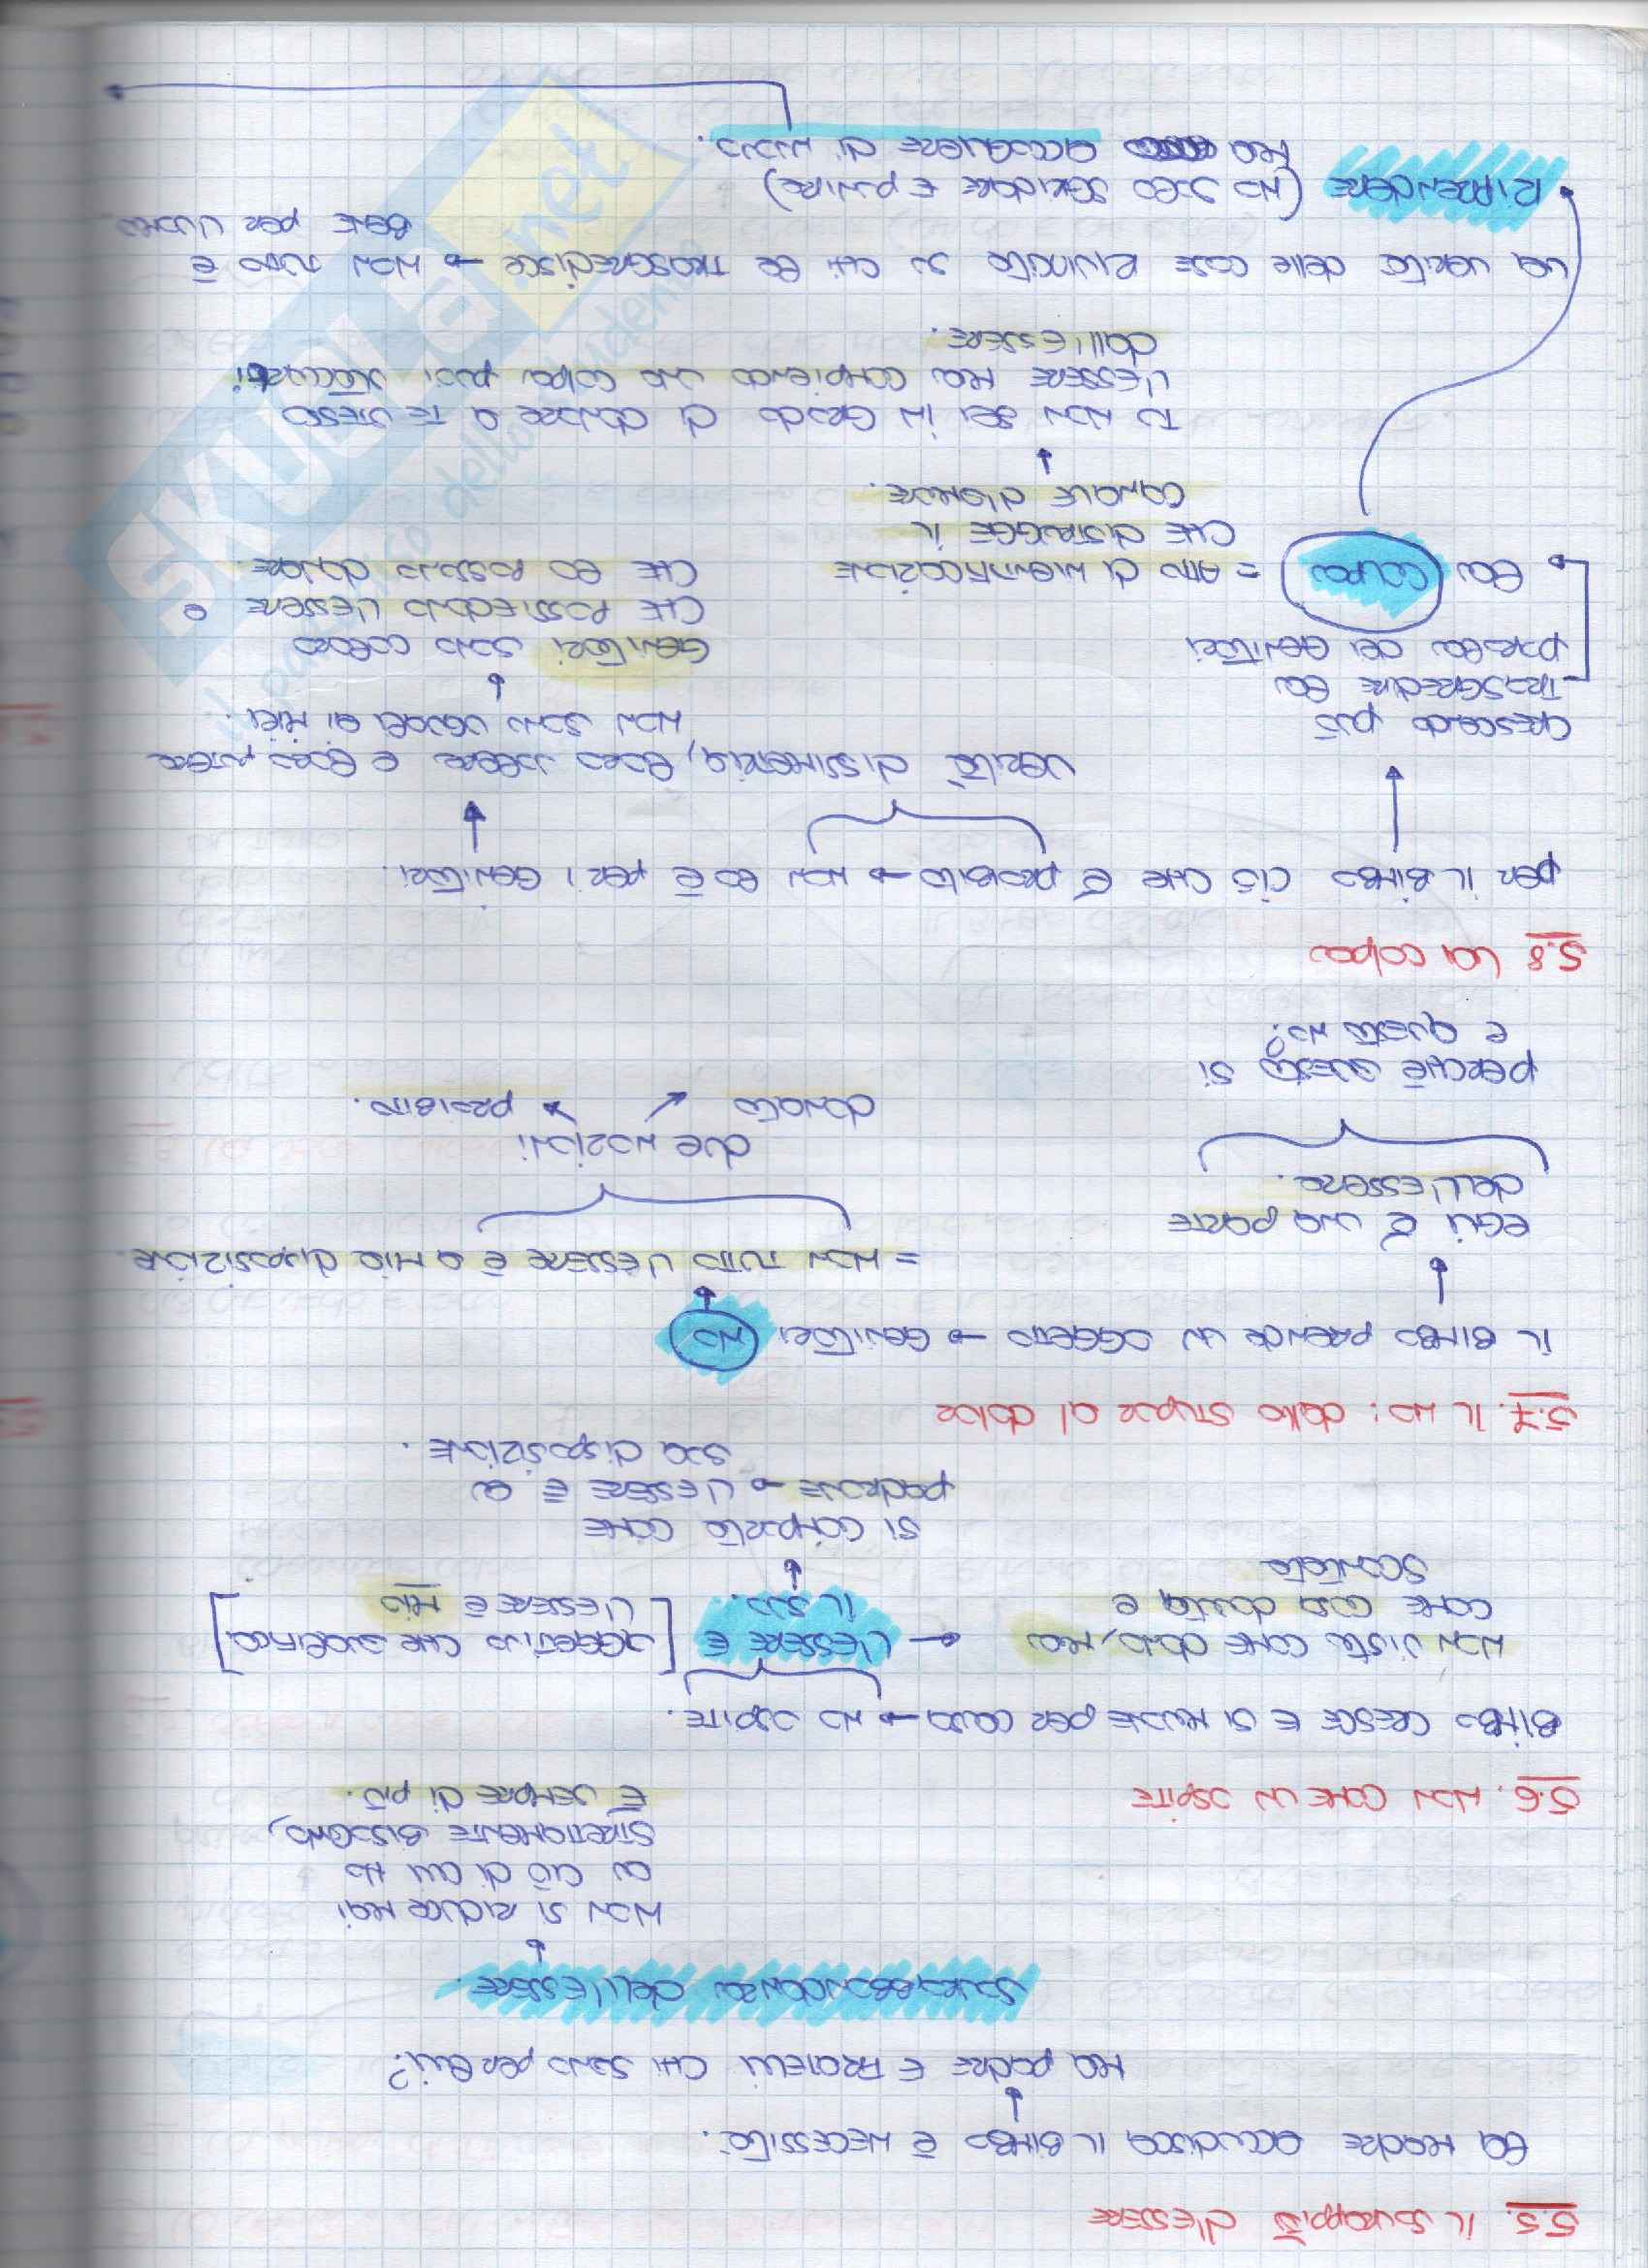 5.5. IL SURAPPIÙ D'ESSERE
LA MADRE ACCUDISCA IL BIMBO È NECESSITÀ.
MA PADRE E FRATELLI CHI SONO PER LUI?
SOVRABBONDANZA DELL'ESSERE.
NON SI RIDUCE MAI
A CIÒ DI CUI HO
STRETTAMENTE BISOGNO,
È SEMPRE DI PIÙ.
5.6. NON COME UN OSPITE
BIMBO CRESCE E SI MUOVE PER CASA → NO OSPITE.
NON VISTA COME DONO, MA
COME COSA DOVUTA E
SCONTATA
→ L'ESSERE È
IL SUO.
[OGGETTIVO CHE SIGNIFICA
L'ESSERE È MIO]
SI COMPORTA COME
PADRONE → L'ESSERE È A
SUA DISPOSIZIONE.
5.7. IL NO: DALLO STUPORE AL DOLORE
IL BIMBO PRENDE UN OGGETTO → GENITORI NO
EGLI È UNA PARTE
DELL'ESSERE.
= NON TUTTO L'ESSERE È A MIA DISPOSIZIONE.
DUE NOZIONI
DONATO PROIBITO.
PERCHÉ QUESTO SÌ
E QUESTO NO?
5.8 LA COLPA
PER IL BIMBO CIÒ CHE È PROIBITO → NON LO È PER I GENITORI.
VERITÀ DISSIMETRIA, LORO SAPERE E LORO POTERE
NON SONO UGUALI AI MIEI.
CRESCENDO PUÒ
TRASGREDIRE LA
PAROLA DEI GENITORI
GENITORI SONO COLORO
CHE POSSIEDONO L'ESSERE E
CHE LO POSSONO DONARE.
LA COLPA = ATTO DI
CHE DISTRUGGE IL
CANALE D'AMORE.
TU NON SEI IN GRADO DI DONARE A TE STESSO
L'ESSERE MA COMPIENDO UNA COLPA PUOI STACCARTI
DALL'ESSERE.
LA VERITÀ DELLE COSE RIVINCITA SU CHI LE TRASGREDISCE → NON TUTTO È
BENE PER L'UOMO
• RIPRENDERE (NO SOLO SGRIDARE E PUNIRE)
MA ACCOGLIERE DI NUOVO.
SKUOLA.net